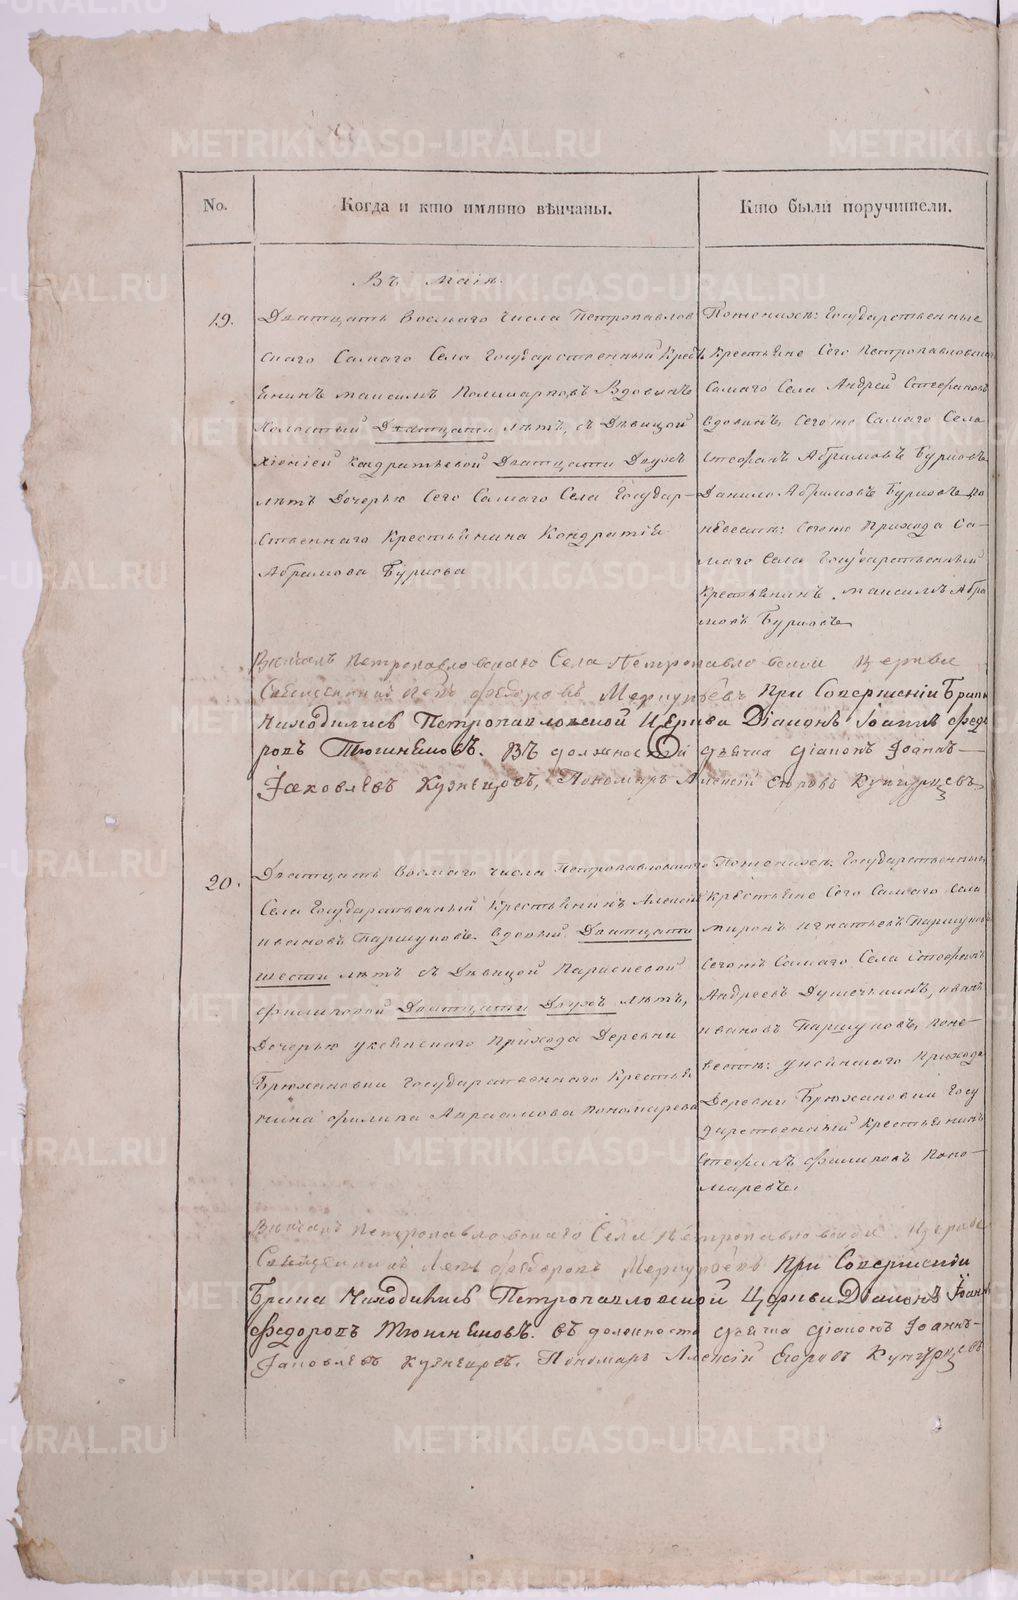 No.
Когда и кто имянно вѣнчаны.
Кто были поручители.
Въ маiѣ.
19.
Дватцать восмаго числа Петропавлов
скаго Самаго Села Государственный Крестья
янинъ Максимъ Поликарповъ Вдовинъ
холостый Дватцати лѣтъ, съ Дѣвицой
Хiонiей Кандратьевой Дватцати Двухъ
лѣтъ Дочерью Сего Самаго Села Государ-
ственнаго Крестьянина Кондратiя
Абрамова Буркова
Поженихѣ: Государственные
Крестьяне Сего Петропавловскаго
Самаго Села Андрей Стефановъ
Вдовинъ, Сегоже Самаго Села
Стефанъ Абрамовъ Бурковъ
Данило Абрамовъ Бурковъ По
невестѣ: Сегоже Прихода Са-
маго Села Государственный
Крестьянинъ Максимъ Абра
мовъ Бурковъ
Вѣнчалъ Петропавловскаго Села Петропавловской Церкви
Священникъ Левъ Федоровъ Меркурьевъ При Совершенiи Брака
Находились Петропавловской Церкви Дiаконъ Iоаннъ Федо
ровъ Тюшняковъ. Въ должности дьячка дiаконъ Iоаннъ
Iаковлевъ Кузнецовъ, Пономарь Алексiй Егоровъ Кунгурцевъ
20.
Дватцать Восмаго числа Петропавловскаго
Села Государственный Крестьянинъ Алексей
Ивановъ Паршуковъ вдовый Дватцати
шести лѣтъ съ Дѣвицой Параскевой
Филиповой Дватцати Двухъ лѣтъ,
Дочерью Уксянскаго Прихода Деревни
Брюхановки Государственнаго Крестья
нина Филипа Апрасимова Пономарева
Поженихѣ: Государственные
крестьяне Сего Самаго Села
Миронъ Игнатьевъ Паршуковъ
Сегожъ Самаго Села Стефанъ
Андреевъ Душечкинъ, Иванъ
Ивановъ Паршуковъ, Поне-
вестѣ: Уксянскаго Прихода
Деревни Брюхановки Госу
дарственный Крестьянинъ
Стефанъ Филиповъ Поно-
маревъ.
Вѣнчалъ Петропавловскаго Села Петропавловской Церкви
Священникъ Левъ Федоровъ Меркурьевъ При Совершенiи
Брака Находились Петропавловской Церкви Дiаконъ Iоаннъ
Федоровъ Тюшняковъ. Въ должности дьячка дiаконъ Iоаннъ
Iаковлевъ Кузнецовъ. Пономарь Алексiй Егоровъ Кунгурцевъ